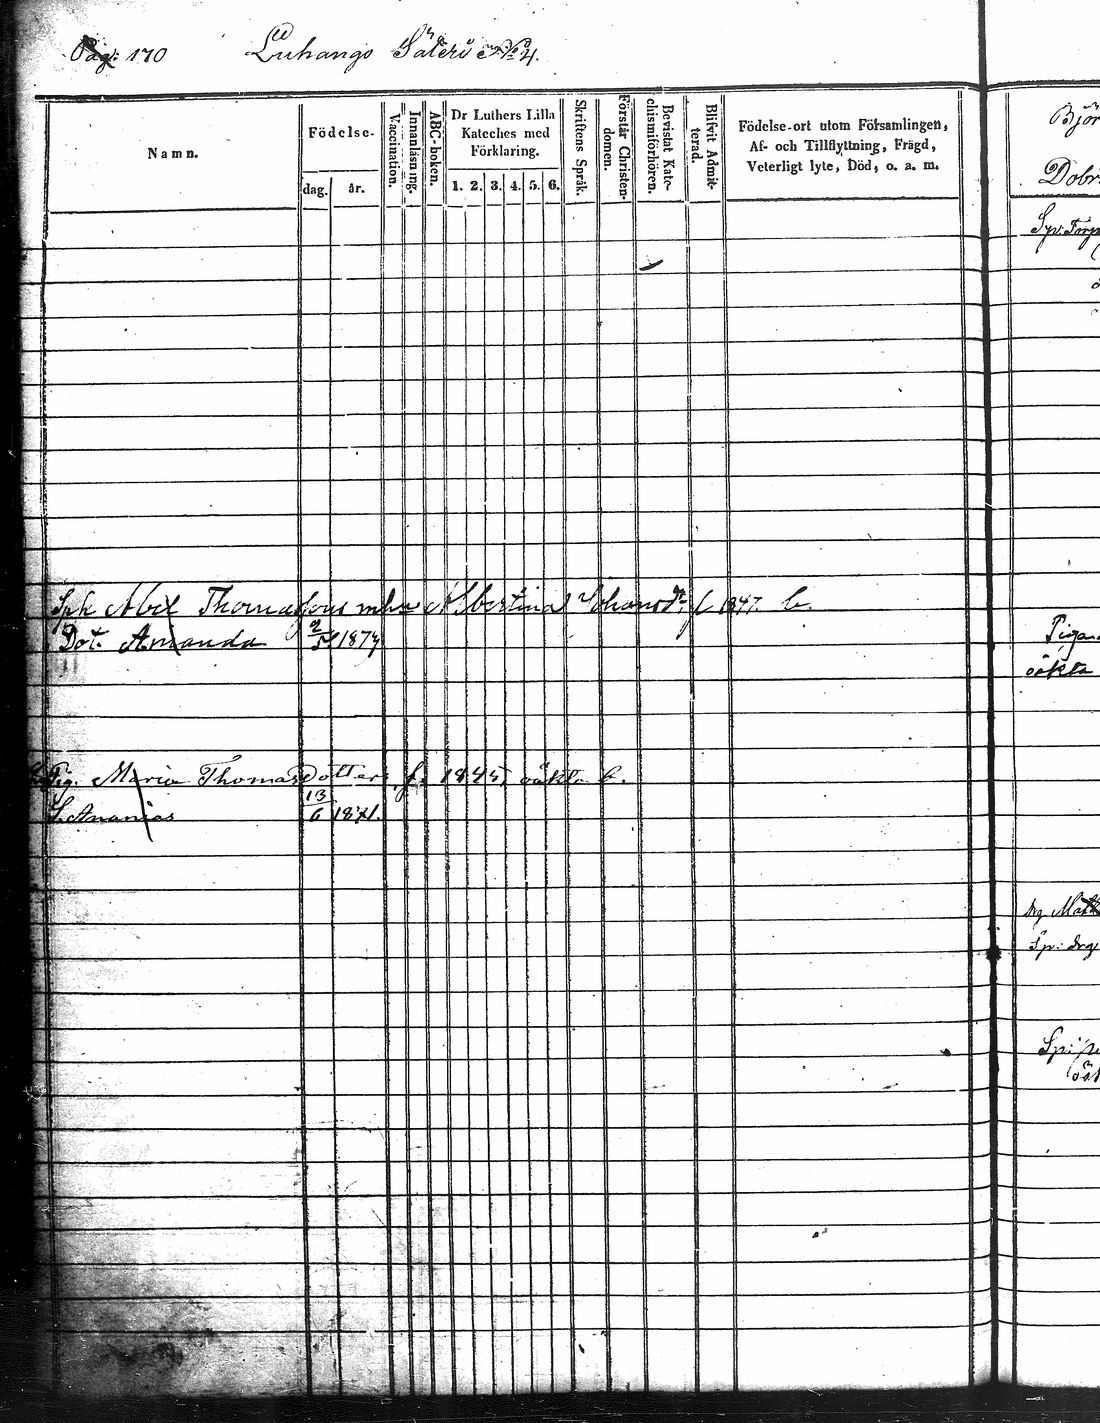 Pag: 170 Luhango Säteri No 4.
Namn.
Födelse-
dag. år.
Vaccination.
Innanläsning.
ABC-boken.
Dr Luthers Lilla
Kateches med
Förklaring.
1. 2. 3. 4. 5. 6.
Skriftens Språk.
Förstår Christen-
domen.
Bevistat Kate-
chismiförhören.
Blifvit Admit-
terad.
Födelse-ort utom Församlingen,
Af- och Tillflyttning, Frägd,
Veterligt lyte, Död, o. a. m.
Abel Thomassons Albertina Johansdr f. 1847.
Dot. Amanda 1874
Pig. Maria Thomasdotter f. 1845, oäkta b.
S. Ananias 13/6 1871.
Björ
Dobr
oäkta